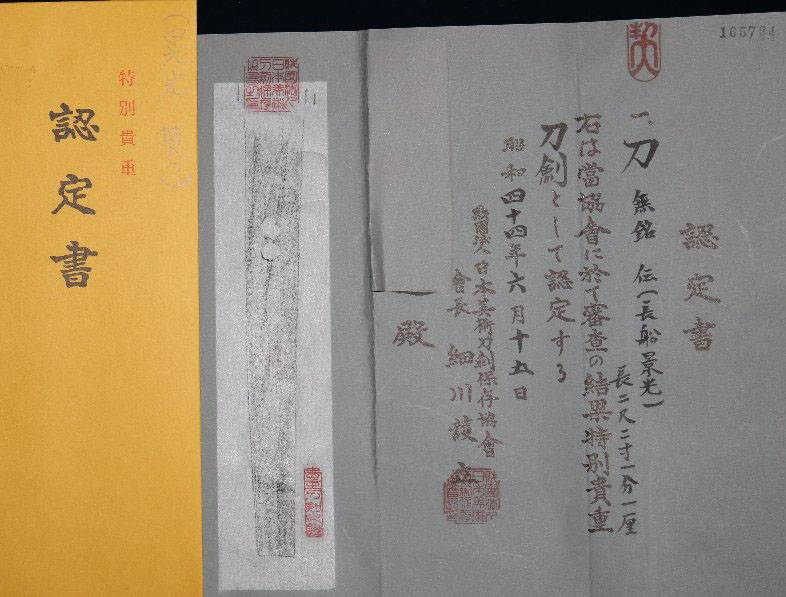 認定書
一、刀 無銘 伝(長船景光)
長二尺二寸一分一厘
右は當協會に於て審査の結果特別貴重
刀劍として認定する
昭和四十四年六月十五日
財團法人日本美術刀劍保存協會
會長 細川護立
殿
特別貴重
認定書